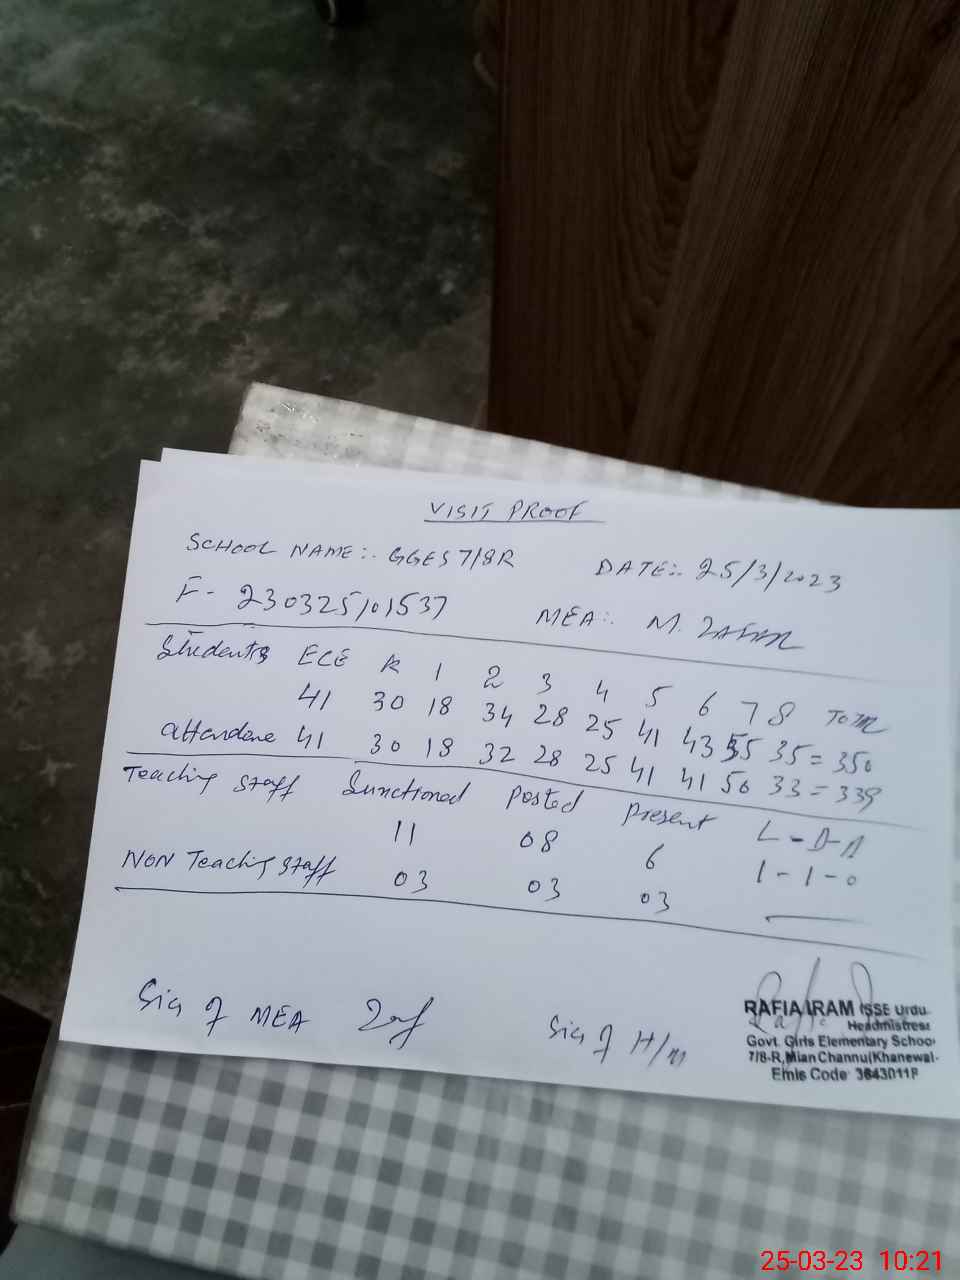 VISIT PROOF
SCHOOL NAME:- GGES 7/8R DATE:- 25/3/2023
F- 230325101537 MEA:- M. ZAFAR
Students ECE K 1 2 3 4 5 6 7 8 TOTAL
41 30 18 34 28 25 41 43 55 35 = 350
Attendane 41 30 18 32 28 25 41 41 50 33 = 339
Teaching Staff Sunctioned Posted Present L-D-A
11 08 6 1-1-0
NON Teaching Staff 03 03 03
Sig of MEA Zaf Sig of H/M
RAFIA IRAM (SSE Urdu
Headmistress
Govt. Girls Elementary School
7/8-R, Mian Channu(Khanewal-
Emis Code
25-03-23 10:21